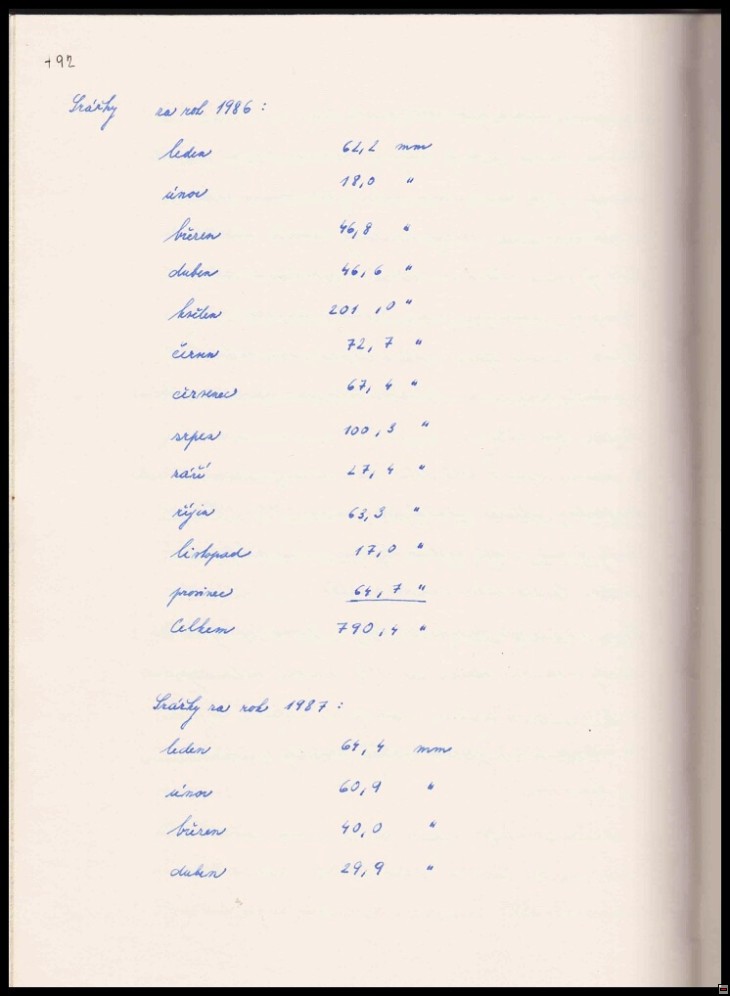 192
Srážky za rok 1986 :
leden 62,2 mm
únor 18,0 "
březen 46,8 "
duben 46,6 "
květen 201,0 "
červen 72,7 "
červenec 67,4 "
srpen 100,3 "
září 27,4 "
říjen 63,3 "
listopad 17,0 "
prosinec 64,7 "
Celkem 790,4 "
Srážky za rok 1987 :
leden 64,4 mm
únor 60,9 "
březen 40,0 "
duben 29,9 "